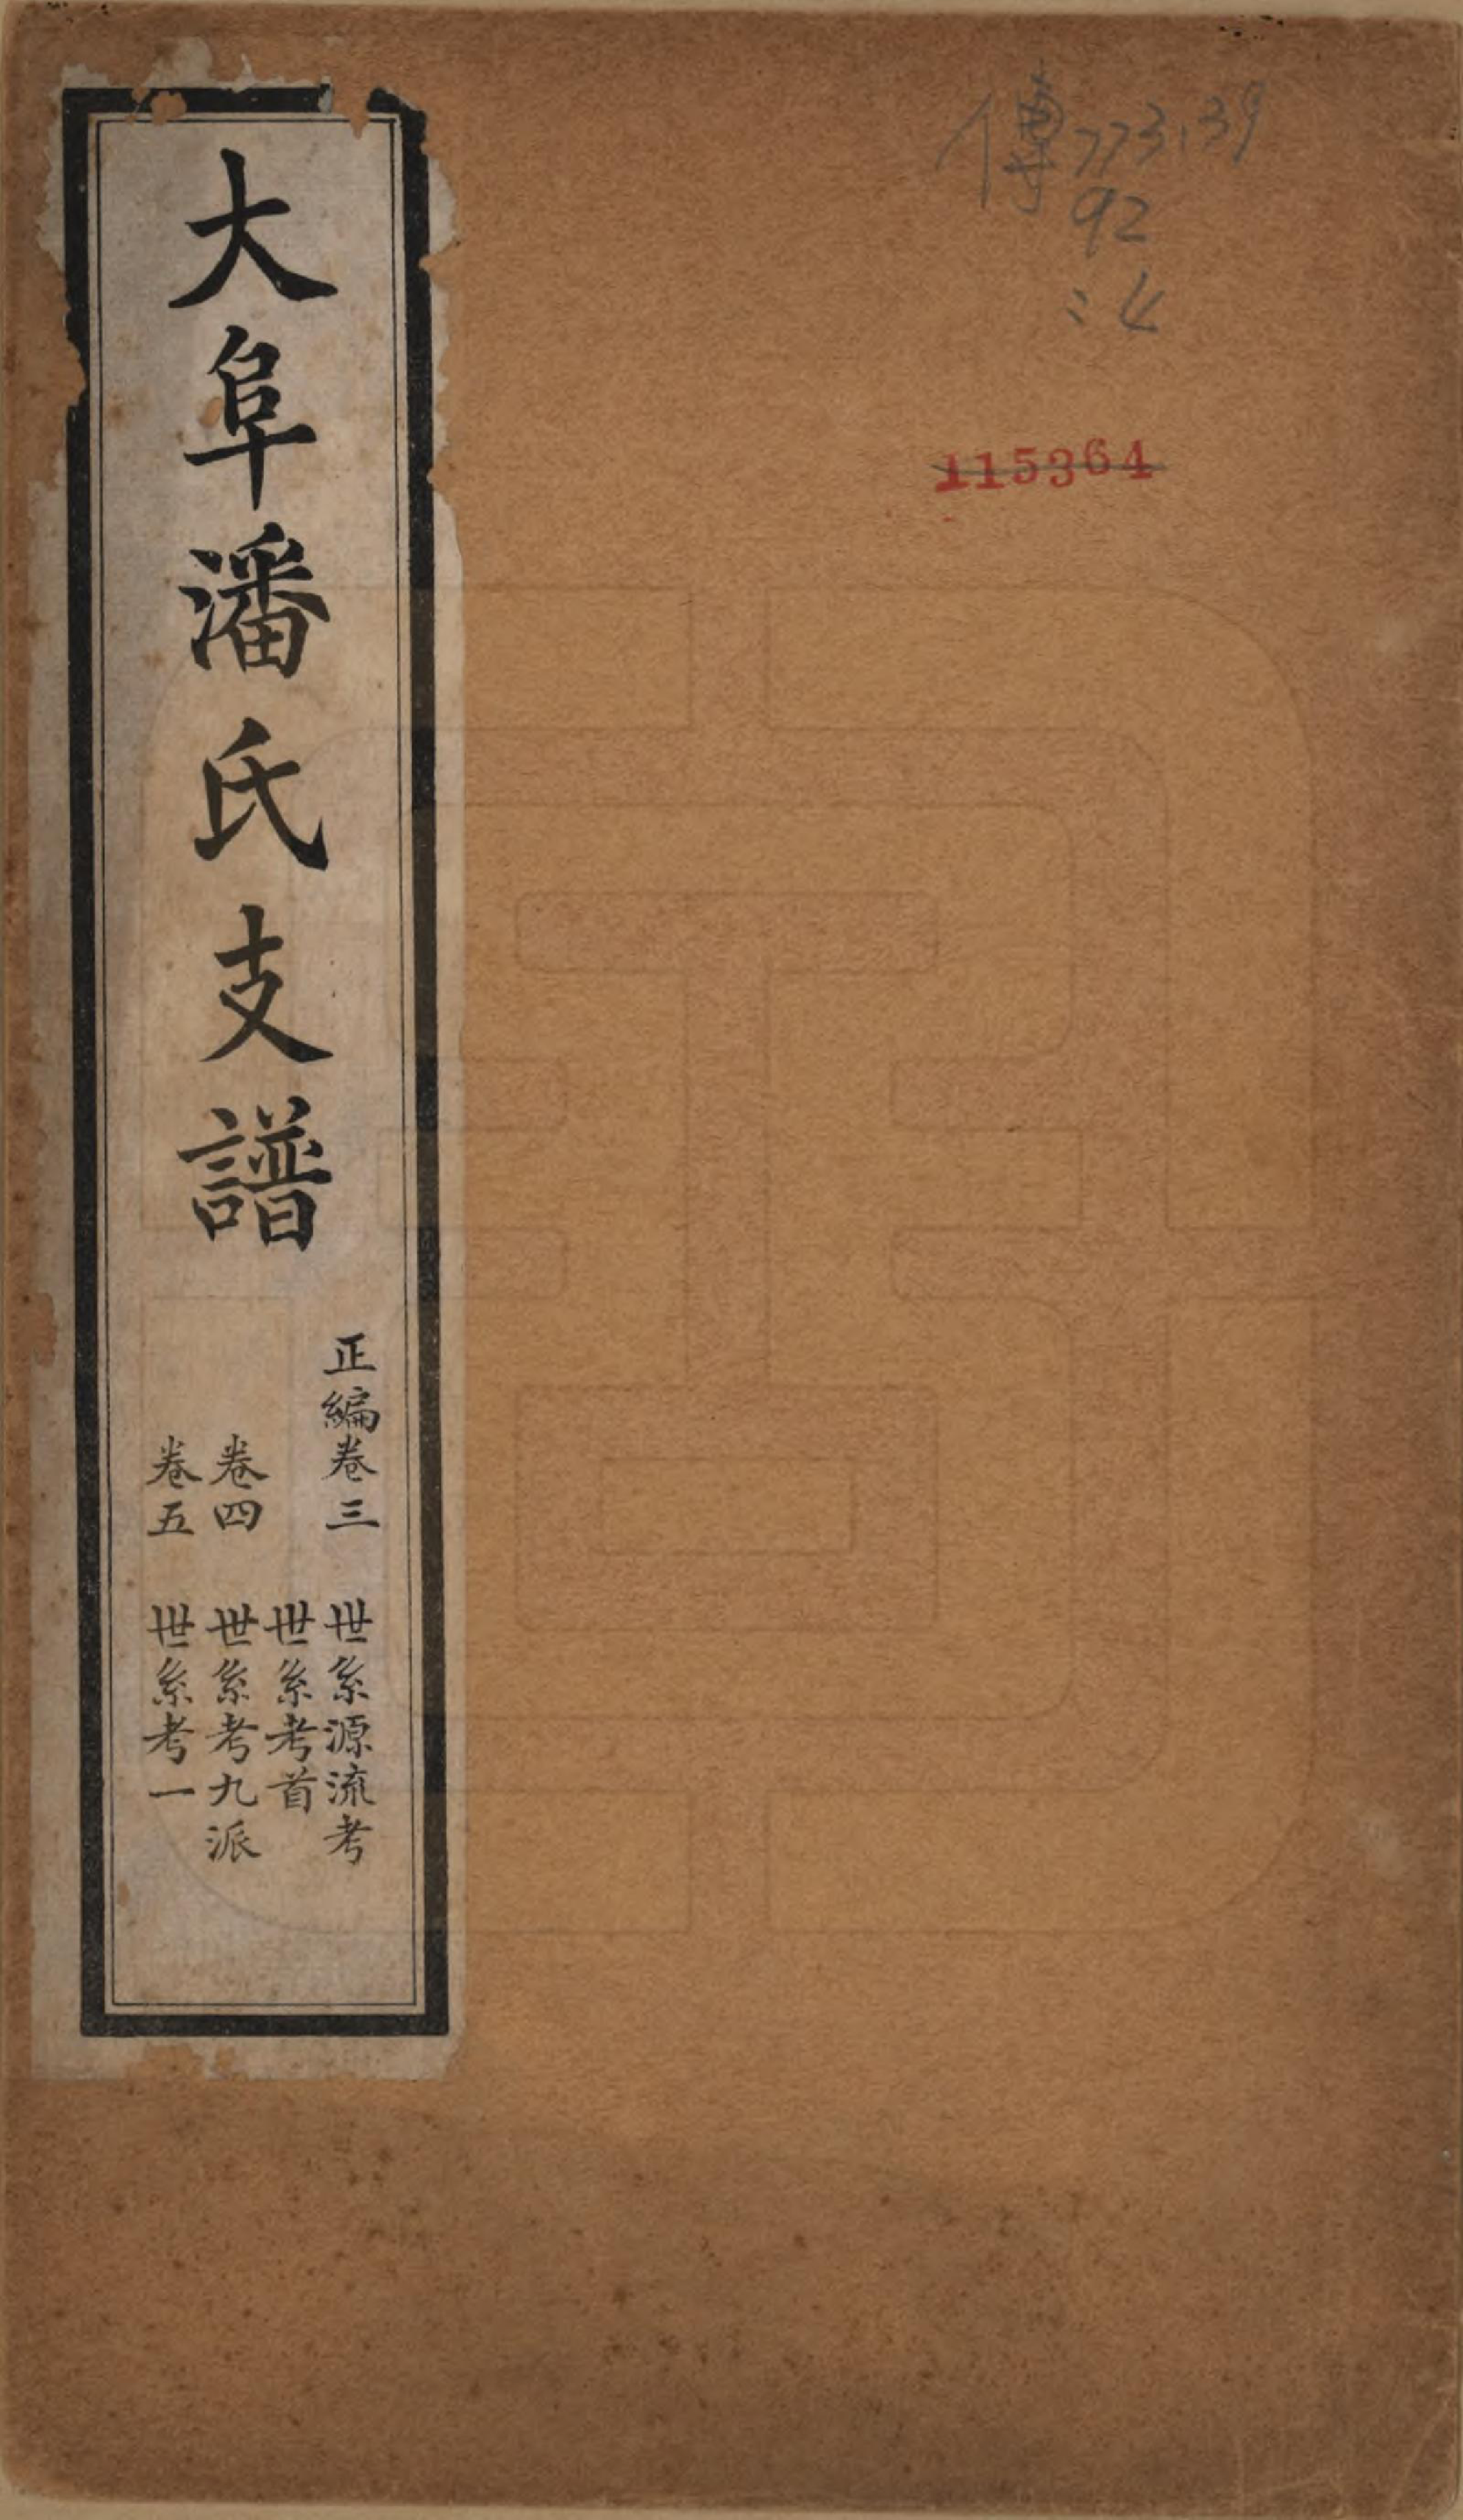 大阜潘氏支譜
正編卷三 世系源流考
世系考首
卷四 世系考九派
卷五 世系考一
傳773.39
92
:4
115364